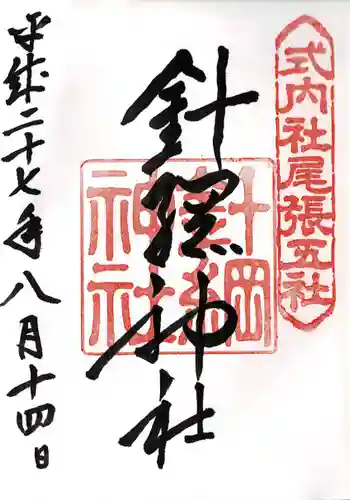 式内社尾張五社
針綱神社
平成二十七年八月十四日